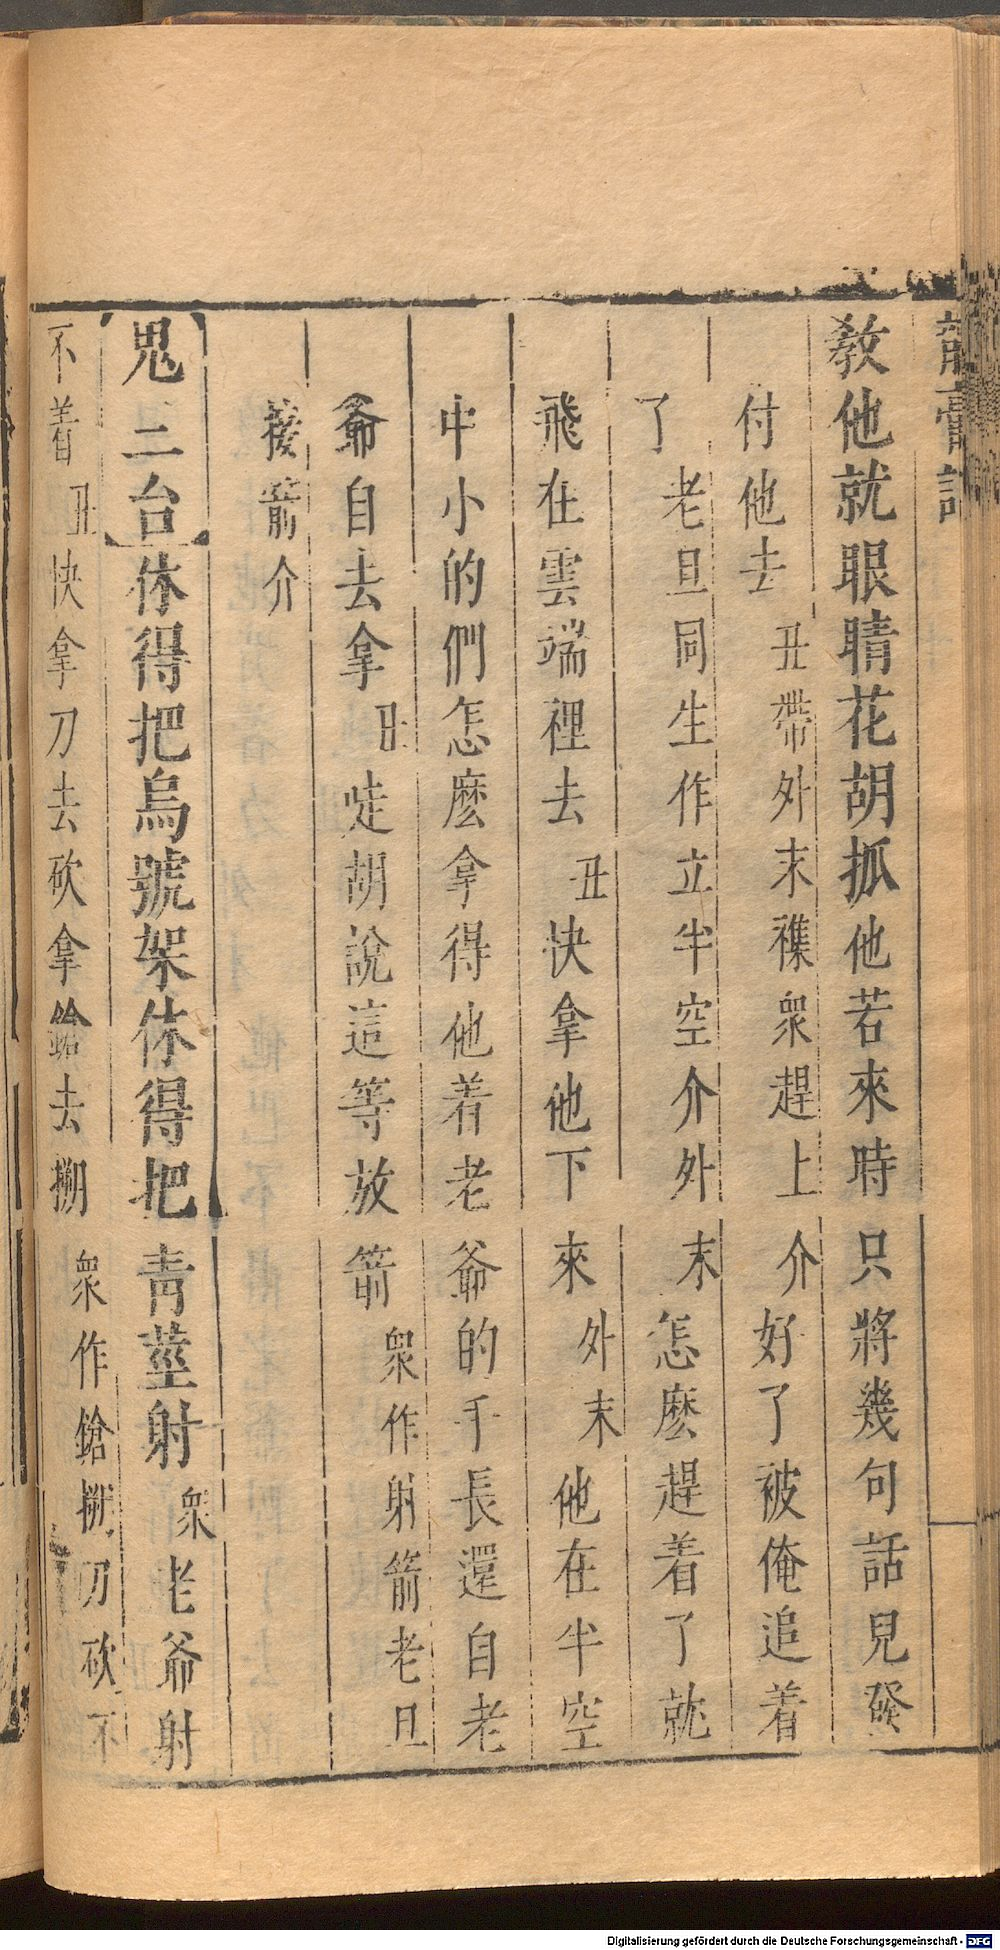 龍膏記
教他就眼睛花胡抓他若來時只將幾句話兒發
付他去丑帶外末襍衆趕上介好了被俺追着
了老旦同生作立半空介外末怎麽趕着了就
飛在雲端裡去丑快拿他下來外末他在半空
中小的們怎麽拿得他着老爺的手長還自老
爺自去拿丑唗胡說這等放箭衆作射箭老旦
接箭介
鬼三台休得把烏號架休得把青莖射衆老爺射
不着丑快拿刀去砍拿鎗去搠衆作鎗搠刀砍不
Digitalisierung gefördert durch die Deutsche Forschungsgemeinschaft - DFG